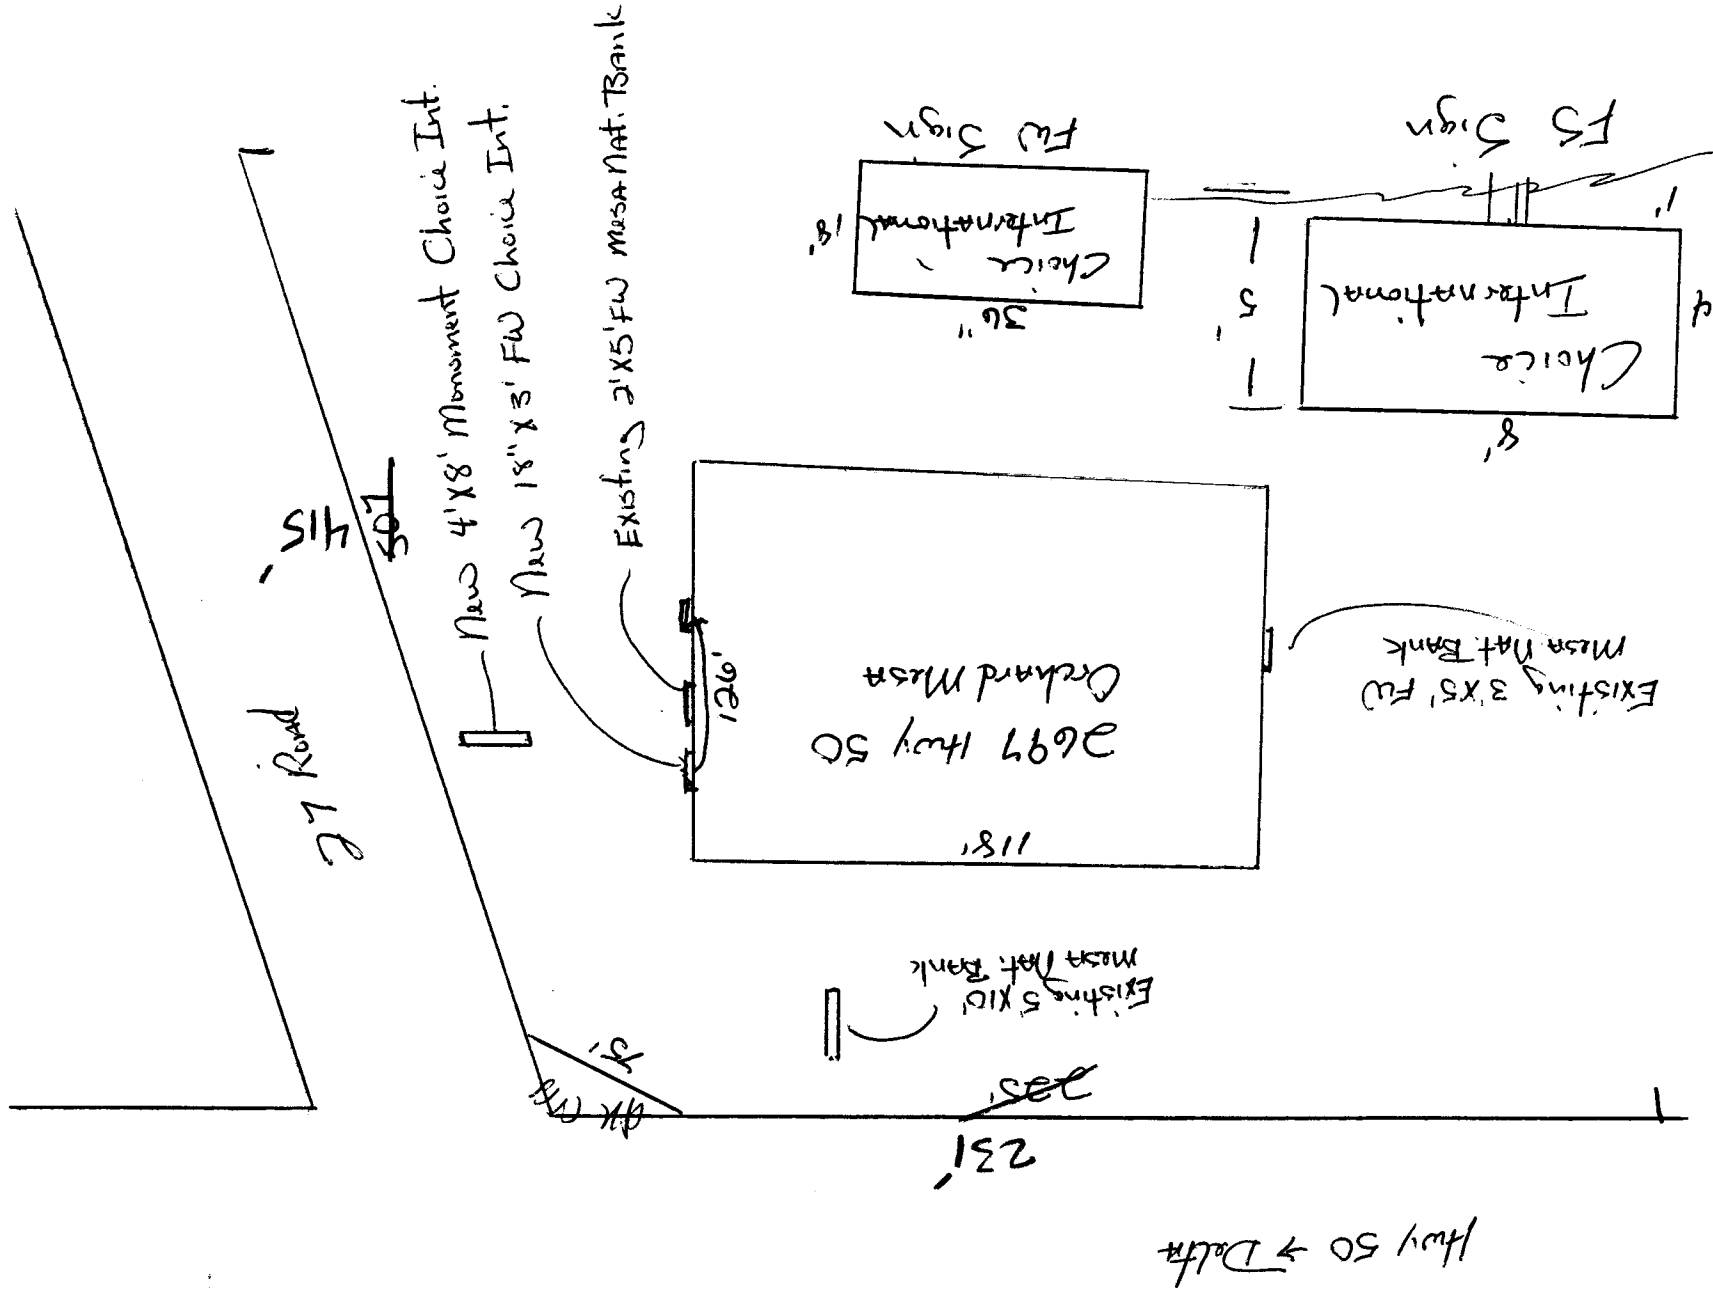 Hwy 50 → Delta
231'
225'
Existing 5'x10'
Mesa Nat. Bank
118'
2697 Hwy 50
Orchard Mesa
126'
Existing 3'x5' FW
Mesa Nat. Bank
27 Road
415'
507
New 4'x8' Monument Choice Int.
New 18"x3' FW Choice Int.
Existing 2'x5' FW Mesa Nat. Bank
8'
Choice
International
4
1'
FS Sign
5'
36"
Choice
International
18'
FW Sign